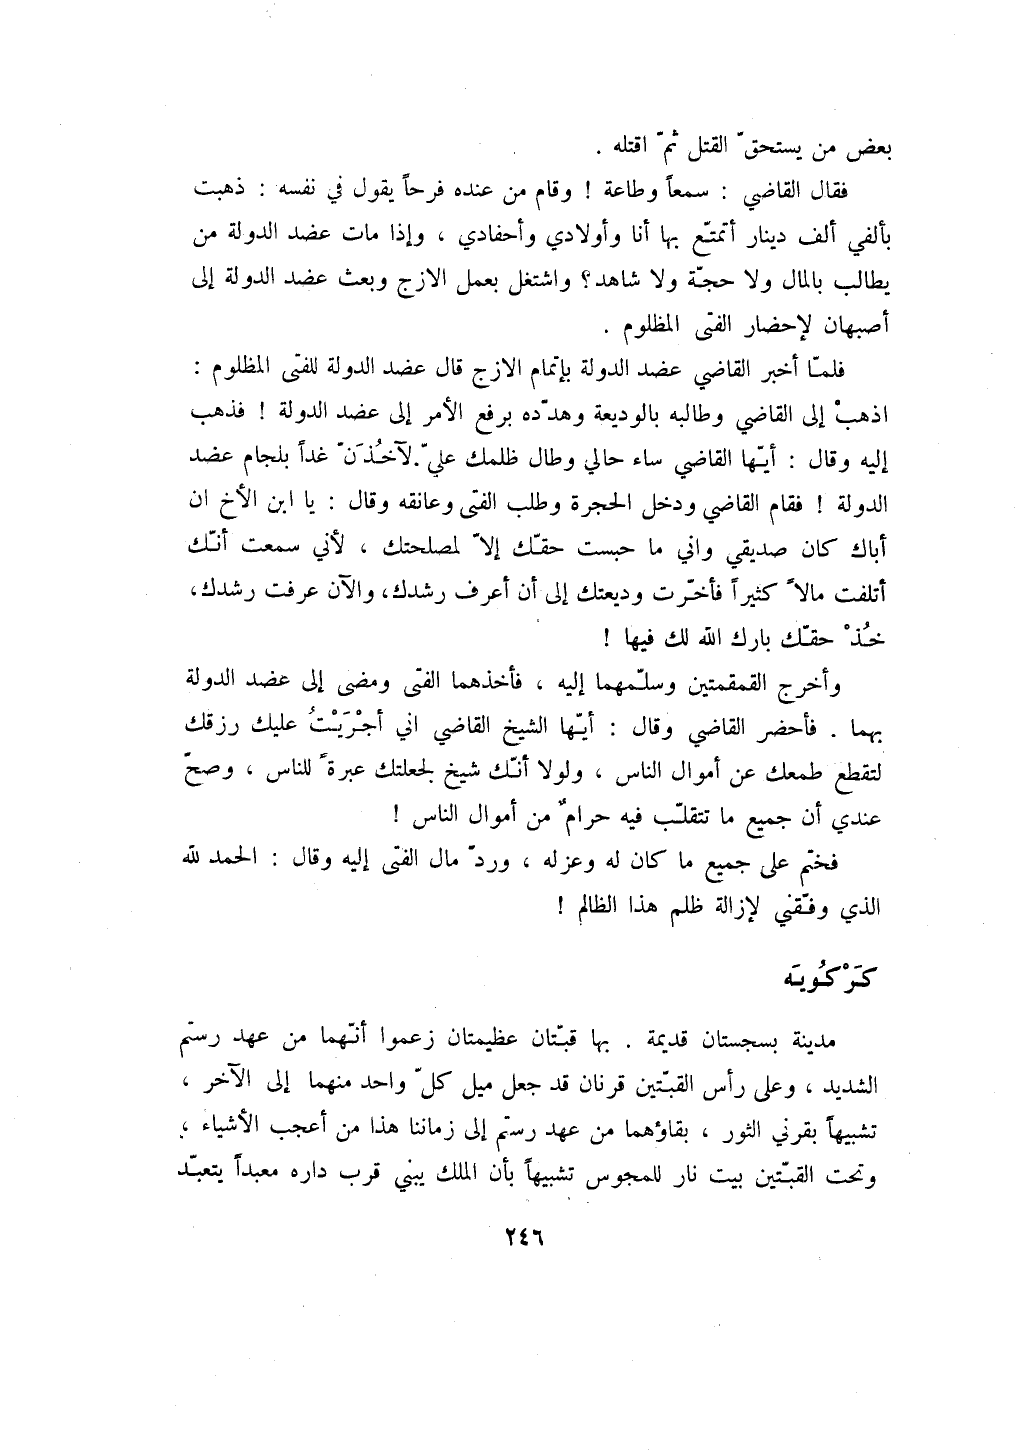 بعض من يستحقّ القتل ثمّ اقتله .
فقال القاضي : سمعاً وطاعة ! وقام من عنده فرحاً يقول في نفسه : ذهبت
بألفي ألف دينار أتمتّع بها أنا وأولادي وأحفادي ، وإذا مات عضد الدولة من
يطالب بالمال ولا حجّة ولا شاهد؟ واشتغل بعمل الازج وبعث عضد الدولة إلى
أصبهان لإحضار الفتى المظلوم .
فلمّا أخبر القاضي عضد الدولة بإتمام الازج قال عضد الدولة للفتى المظلوم :
اذهبْ إلى القاضي وطالبه بالوديعة وهدّده برفع الأمر إلى عضد الدولة ! فذهب
إليه وقال : أيّها القاضي ساء حالي وطال ظلمك عليّ . لآخُذَنّ غداً بلجام عضد
الدولة ! فقام القاضي ودخل الحجرة وطلب الفتى وعانقه وقال : يا ابن الأخ ان
أباك كان صديقي واني ما حبست حقّك إلاّ لمصلحتك ، لأني سمعت أنّك
أتلفت مالاً كثيراً فأخّرت وديعتك إلى أن أعرف رشدك، والآن عرفت رشدك،
خُذْ حقّك بارك الله لك فيها !
وأخرج القمقمتين وسلّمهما إليه ، فأخذهما الفتى ومضى إلى عضد الدولة
بهما . فأحضر القاضي وقال : أيّها الشيخ القاضي اني أجْرَيْتُ عليك رزقك
لتقطع طمعك عن أموال الناس ، ولولا أنّك شيخ لجعلتك عبرةً للناس ، وصحّ
عندي أن جميع ما تتقلّب فيه حرامٌ من أموال الناس !
فختّم على جميع ما كان له وعزله ، وردّ مال الفتى إليه وقال : الحمد لله
الذي وفّقني لإزالة ظلم هذا الظالم !
كَرْكُويَه
مدينة بسجستان قديمة . بها قبّتان عظيمتان زعموا أنّهما من عهد رستم
الشديد ، وعلى رأس القبّتين قرنان قد جعل ميل كلّ واحد منهما إلى الآخر ،
تشبيهاً بقرني الثور ، بقاؤهما من عهد رستم إلى زماننا هذا من أعجب الأشياء ،
وتحت القبّتين بيت نار للمجوس تشبيهاً بأن الملك يبني قرب داره معبداً يتعبّد
٢٤٦